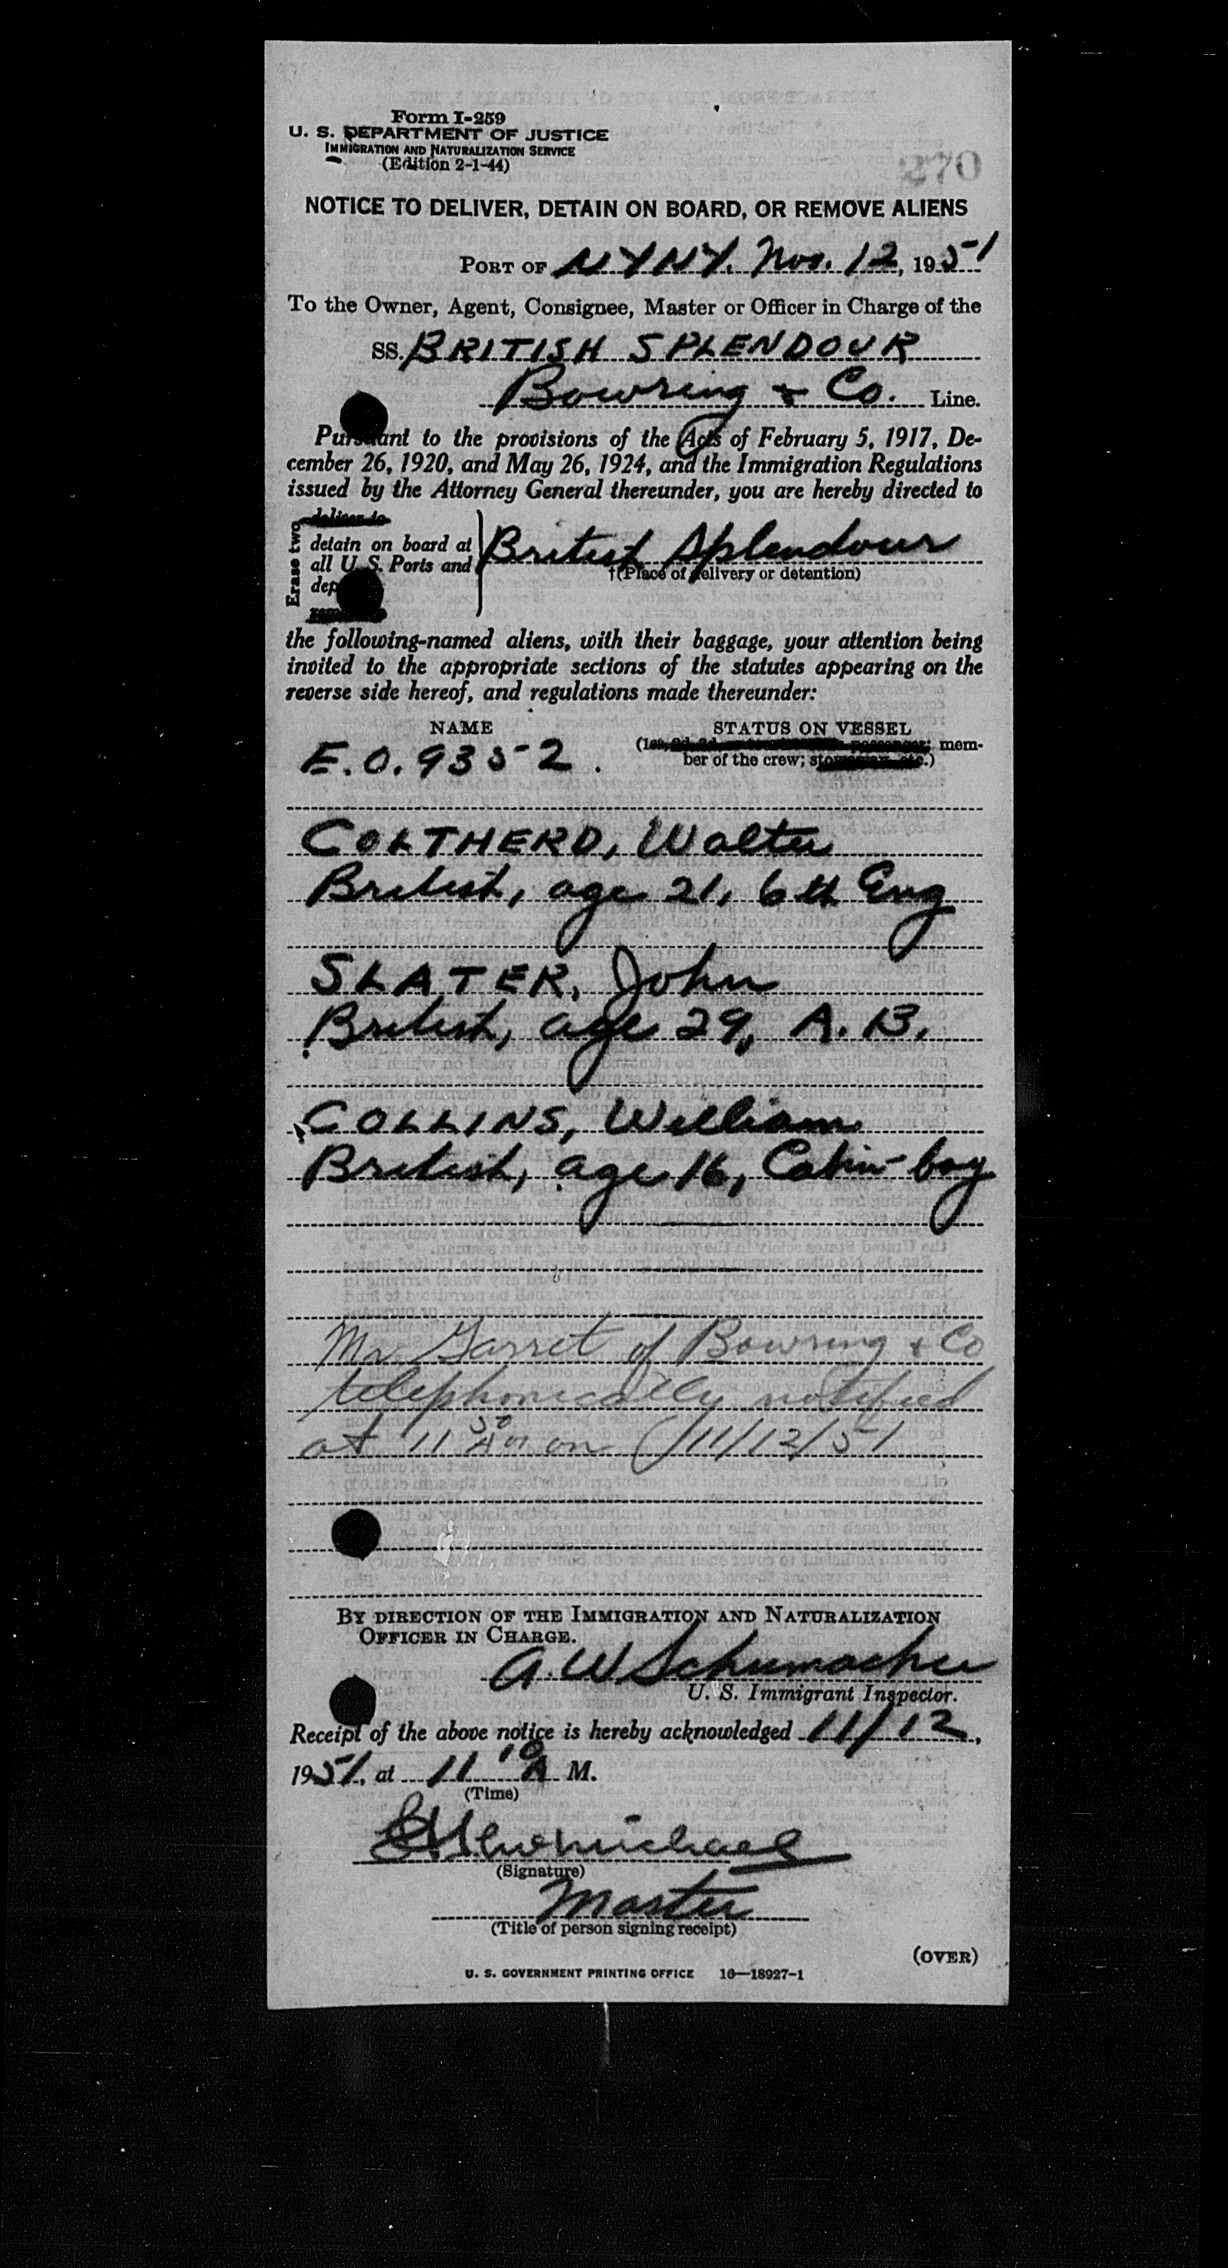 Form I-259
U. S. DEPARTMENT OF JUSTICE
IMMIGRATION AND NATURALIZATION SERVICE
(Edition 2-1-44)
270
NOTICE TO DELIVER, DETAIN ON BOARD, OR REMOVE ALIENS
PORT OF NYNY. Nov. 12, 1951
To the Owner, Agent, Consignee, Master or Officer in Charge of the
SS. BRITISH SPLENDOUR
Bowring & Co. Line.
Pursuant to the provisions of the Acts of February 5, 1917, De-
cember 26, 1920, and May 26, 1924, and the Immigration Regulations
issued by the Attorney General thereunder, you are hereby directed to
Erase two
deliver to
detain on board at
all U. S. Ports and
British Splendour
†(Place of delivery or detention)
the following-named aliens, with their baggage, your attention being
invited to the appropriate sections of the statutes appearing on the
reverse side hereof, and regulations made thereunder:
NAME STATUS ON VESSEL
E.O. 9352. passenger; mem-
ber of the crew; stowaway, etc.)
COLTHERD, Walter
British, age 21, 6th Eng
SLATER, John
British, age 29, A. B.
COLLINS, William
British, age 16, Cabin-boy
Mr Garret of Bowring & Co
telephonically notified
at 11 50 AM on 11/12/51
BY DIRECTION OF THE IMMIGRATION AND NATURALIZATION
OFFICER IN CHARGE.
A. W. Schumacher
U. S. Immigrant Inspector.
Receipt of the above notice is hereby acknowledged 11/12,
1951, at 11 10 A M.
(Time)
(Signature)
Master
(Title of person signing receipt)
(OVER)
U. S. GOVERNMENT PRINTING OFFICE 16—18927-1